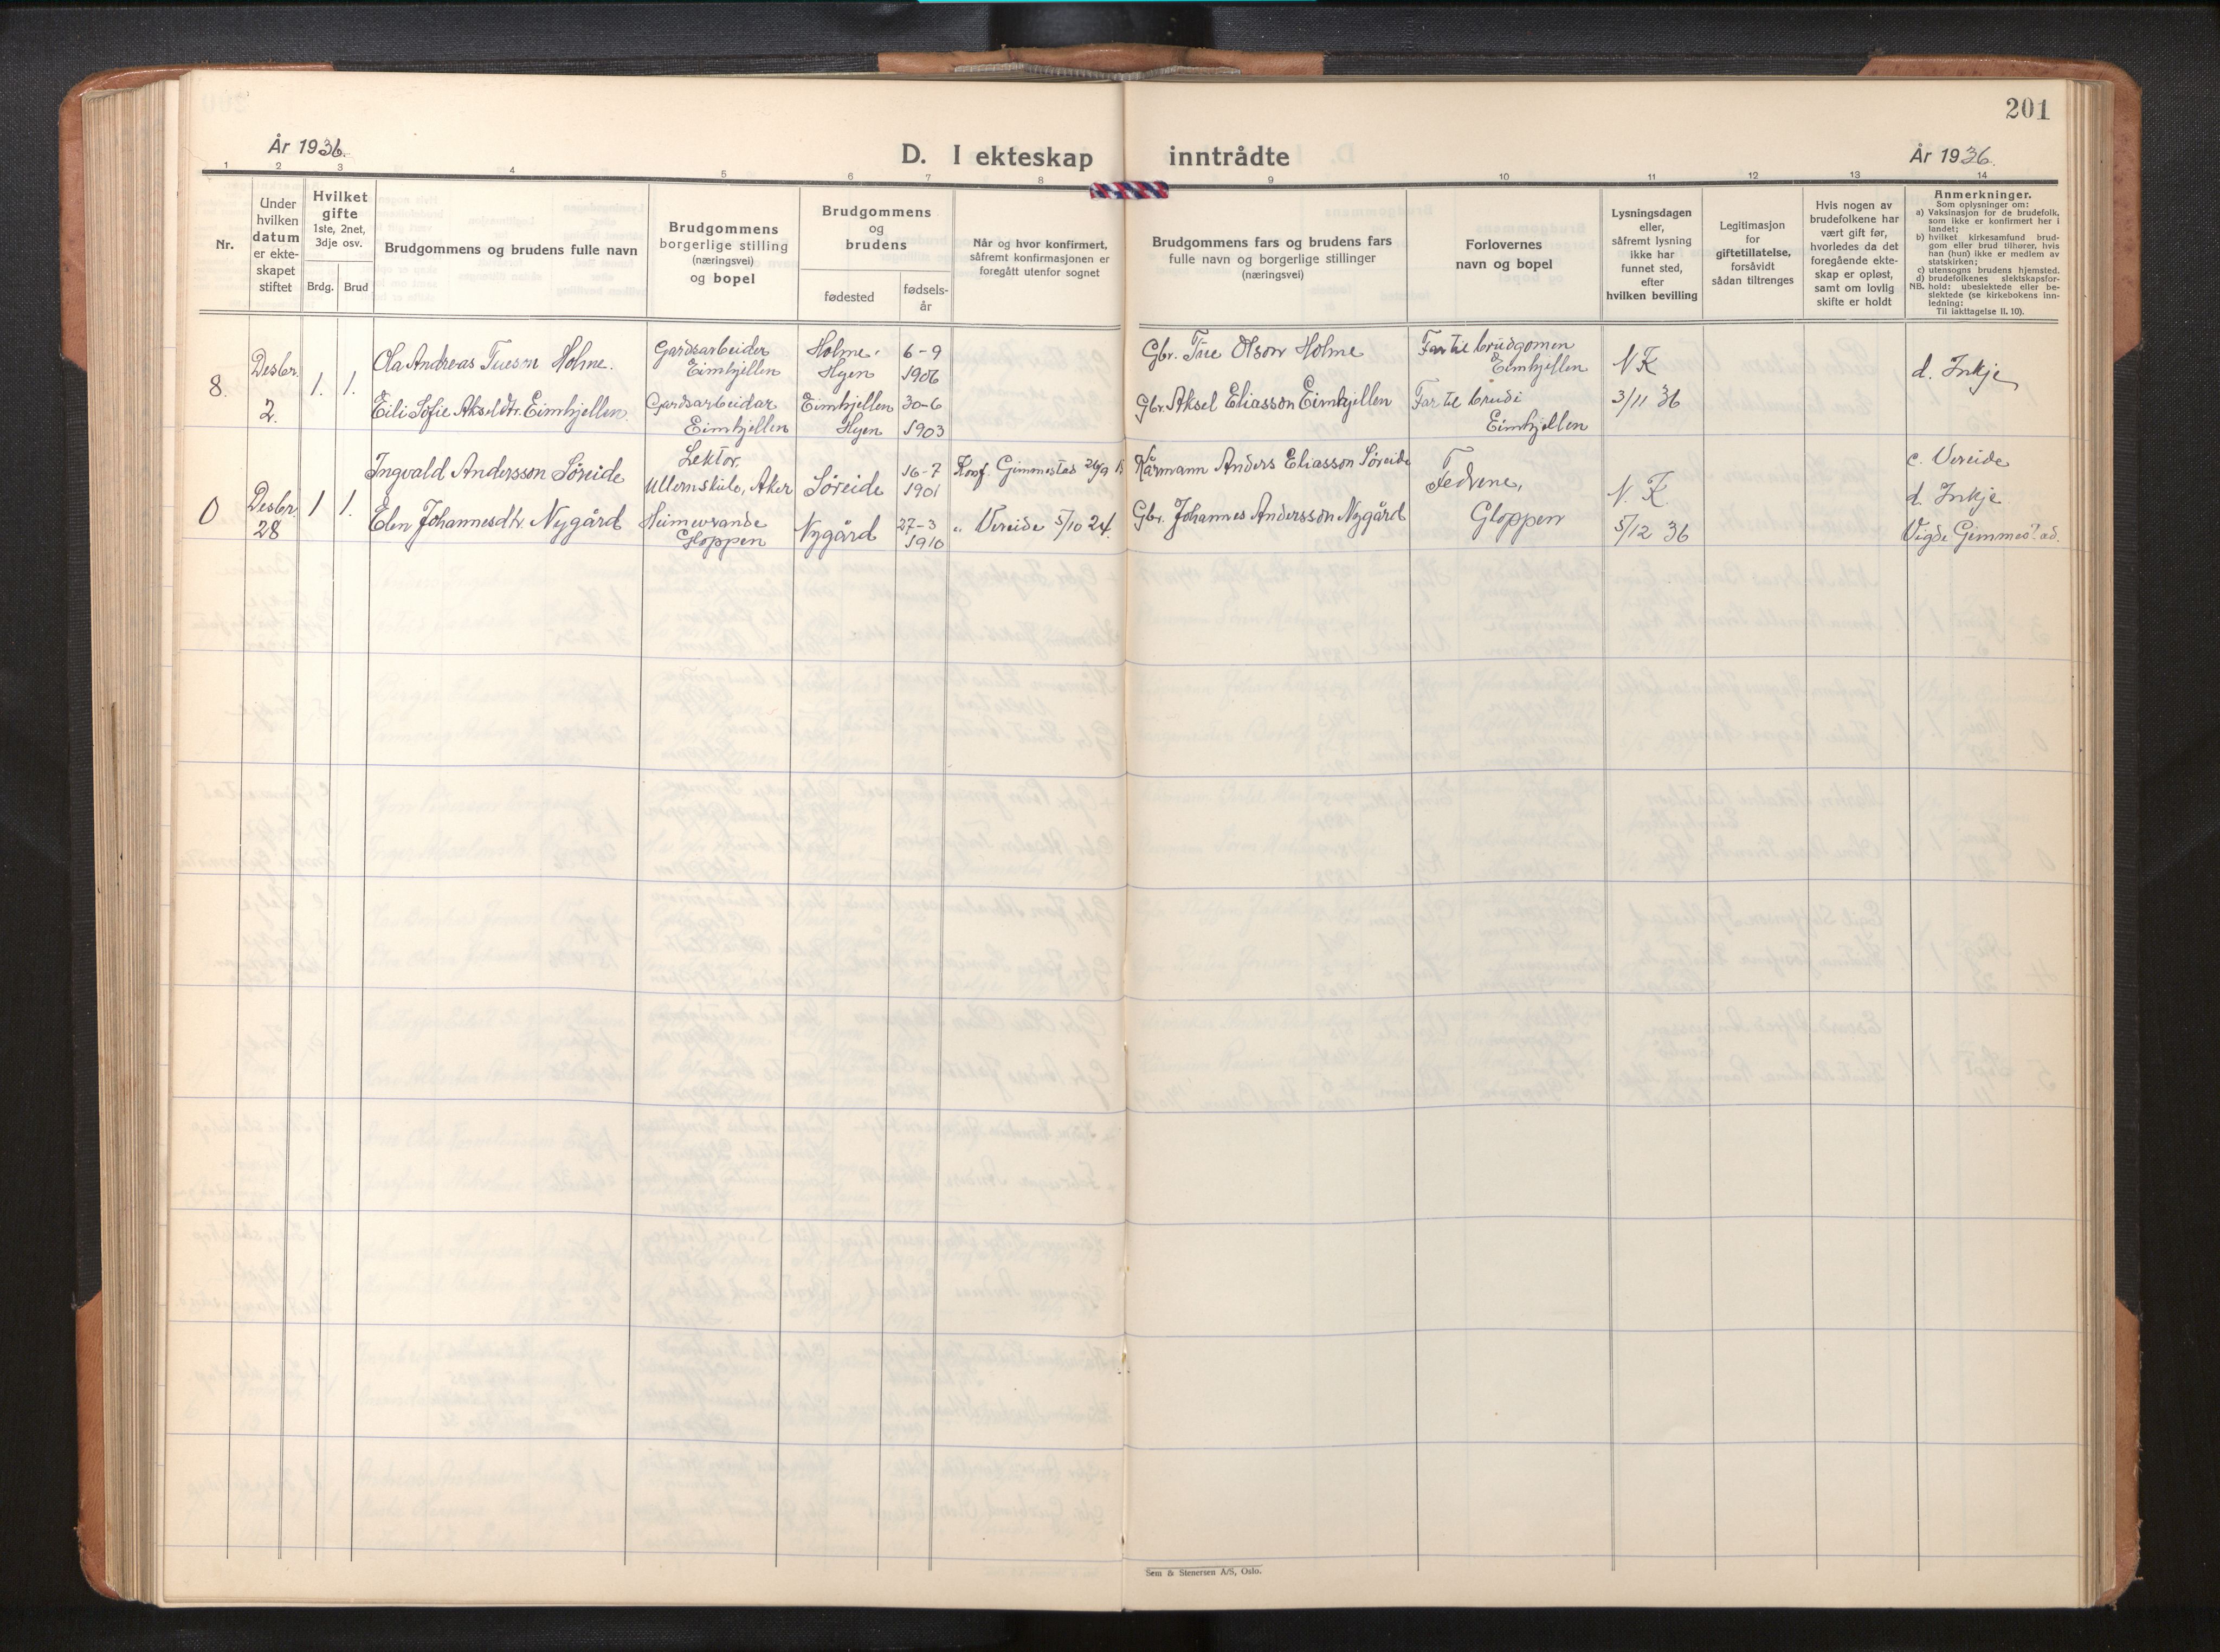 201
År 1936.
D. I ekteskap inntrådte
År 1936.
1 2 3 4 5 6 7 8 9 10 11 12 13 14
Nr.
Under
hvilken
datum
er ekte-
skapet
stiftet
Hvilket
gifte
1ste, 2net,
3dje osv.
Brdg. Brud
Brudgommens og brudens fulle navn
Brudgommens
borgerlige stilling
(næringsvei)
og bopel
Brudgommens
og
brudens
fødested
fødsels-
år
Når og hvor konfirmert,
såfremt konfirmasjonen er
foregått utenfor sognet
Brudgommens fars og brudens fars
fulle navn og borgerlige stillinger
(næringsvei)
Forlovernes
navn og bopel
Lysningsdagen
eller,
såfremt lysning
ikke har
funnet sted,
efter
hvilken bevilling
Legitimasjon
for
giftetillatelse,
forsåvidt
sådan tiltrenges
Hvis nogen av
brudefolkene har
vært gift før,
hvorledes da det
foregående ekte-
skap er opløst,
samt om lovlig
skifte er holdt
Anmerkninger.
Som oplysninger om:
a) Vaksinasjon for de brudefolk,
som ikke er konfirmert her i
landet;
b) hvilket kirkesamfund brud-
gom eller brud tilhører, hvis
han (hun) ikke er medlem av
statskirken;
c) utensogns brudens hjemsted.
d) brudefolkenes slektskapsfor-
NB. hold: ubeslektede eller be-
slektede (se kirkebokens inn-
ledning:
Til iakttagelse II. 10).
8.
Desbr.
2.
1. 1.
Ola Andreas Tueson Holme.
Eili Sofie Akseldtr. Eimhjellen
Gardsarbeider
Eimhjellen
Gardsarbeidar
Eimhjellen
Holme.
Hyen
Eimhjellen
Hyen
6-9
1906
30-6
1903
Gbr. Tue Olson Holme
Gbr. Aksel Eliasson Eimhjellen
Far til brudgomen
Eimhjellen
Far til brudi
Eimhjellen
N K
3/11 36
d. Inkje
0
Desbr.
28
1 1.
Ingvald Andersson Søreide
Elen Johannesdtr. Nygård
Lektor,
Ullernskule, Aker
Heimeverande
Gloppen
Søreide
Nygård
16-7
1901
27-3
1910
Konf. Gimmestad 26/9
" Vereide 5/10 24.
Kårmann Anders Eliasson Søreide
Gbr. Johannes Andersson Nygård
Fedrene,
Gloppen
N. K.
5/12 36
c. Vereide
d. Inkje
Vigde Gimmest.ad.
Sem & Stenersen A/S, Oslo.